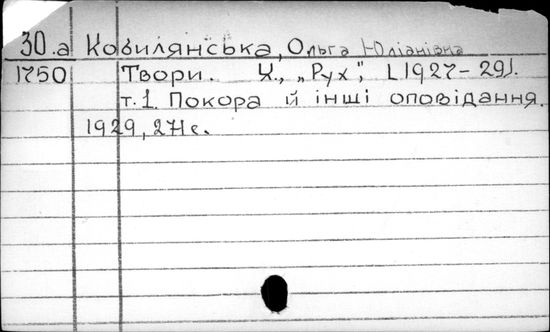 30.а Кобилянська, Ольга Юліанівна
1750 Твори. Х., „Рух”, [1927-29].
т.1. Покора й інші оповідання.
1929, 271 с.